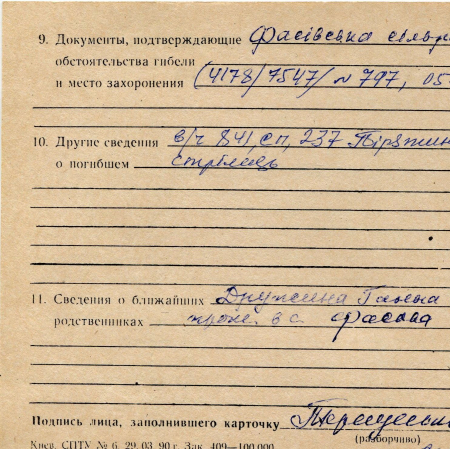 9. Документы, подтверждающие Фасівська сільра
обстоятельства гибели
и место захоронения (4178/7547/ № 797, 05
10. Другие сведения в/ч 841, сп, 237
о погибшем стрілець
11. Сведения о ближайших Дружина Ганна
родственниках прож. в с. Фасова
Подпись лица, заполнившего карточку
(разборчиво)
Киев. СПТУ № 6. 29. 03. 90 г. Зак. 409—100 000